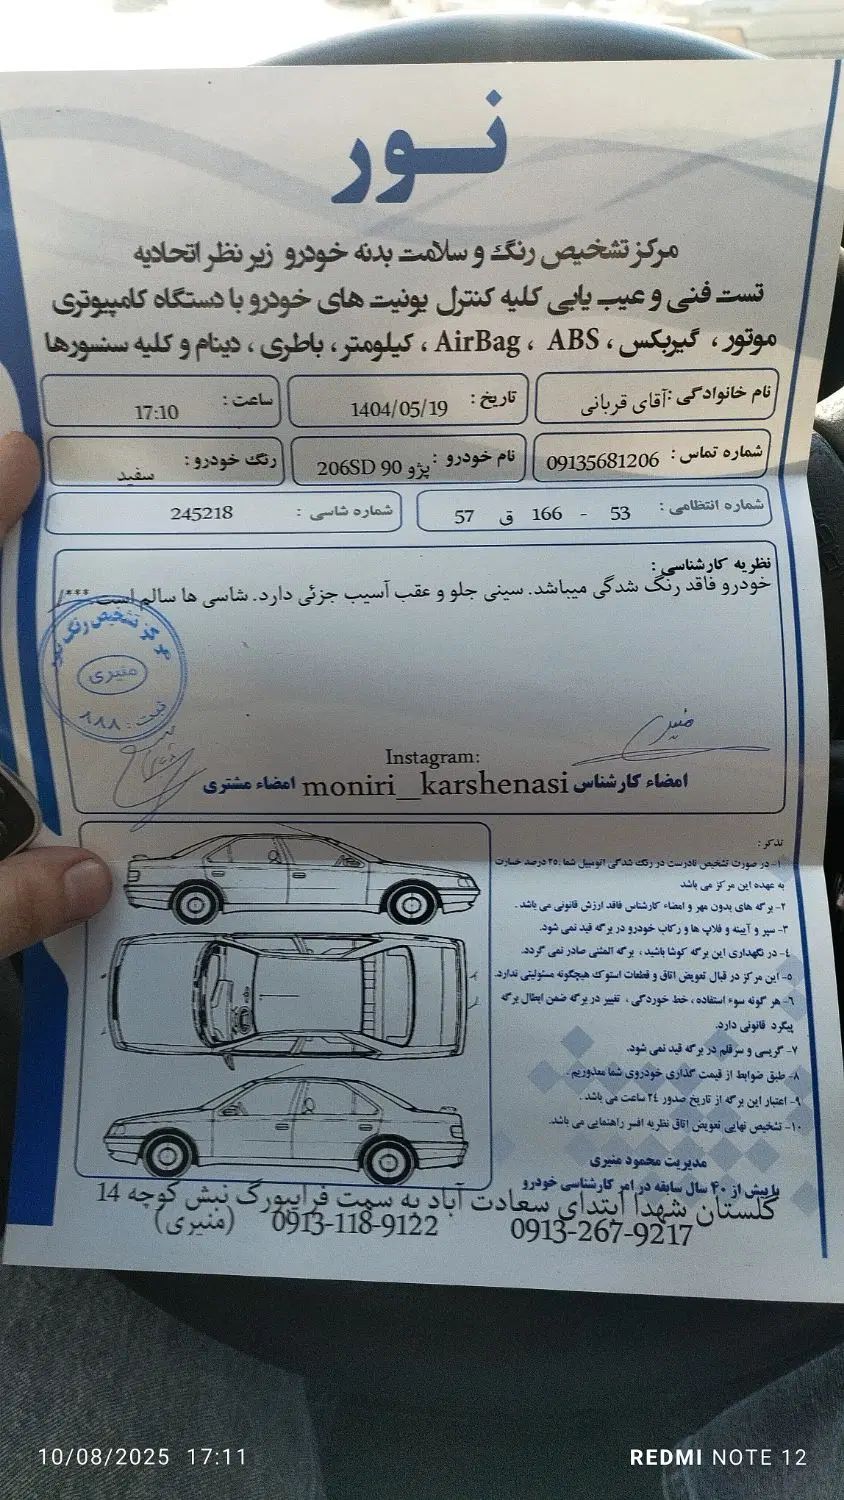 نور
مرکز تشخیص رنگ و سلامت بدنه خودرو زیر نظر اتحادیه
تست فنی و عیب یابی کلیه کنترل یونیت های خودرو با دستگاه کامپیوتری
موتور ، گیربکس ، ABS ، AirBag ، کیلومتر ، باطری ، دینام و کلیه سنسورها
نام خانوادگی: آقای قربانی تاریخ : 1404/05/19 ساعت : 17:10
شماره تماس : 09135681206 نام خودرو : پژو 206SD 90 رنگ خودرو : سفید
شماره انتظامی : 53 - 166 ق 57 شماره شاسی : 245218
نظریه کارشناسی :
خودرو فاقد رنگ شدگی میباشد. سینی جلو و عقب آسیب جزئی دارد. شاسی ها سالم است.***/
مرکز تشخیص رنگ نور
منیری
ثبت : ۸۸۸
Instagram:
امضاء کارشناس moniri_karshenasi امضاء مشتری
تذکر :
۱- در صورت تشخیص نادرست در رنگ شدگی اتومبیل شما ،۲۵ درصد خسارت
به عهده این مرکز می باشد
۲- برگه های بدون مهر و امضاء کارشناس فاقد ارزش قانونی می باشد .
۳- سپر و آیینه و قلاب ها و رکاب خودرو در برگه قید نمی شود.
۴- در نگهداری این برگه کوشا باشید ، برگه المثنی صادر نمی گردد.
۵- این مرکز در قبال تعویض اتاق و قطعات استوک هیچگونه مسئولیتی ندارد.
۶- هر گونه سوء استفاده ، خط خوردگی ، تغییر در برگه ضمن ابطال برگه
پیگرد قانونی دارد.
۷- گریسی و سرقلم در برگه قید نمی شود.
۸- طبق ضوابط از قیمت گذاری خودروی شما معذوریم .
۹- اعتبار این برگه از تاریخ صدور ۲۴ ساعت می باشد .
۱۰- تشخیص نهایی تعویض اتاق نظریه افسر راهنمایی می باشد.
مدیریت محمود منیری
با بیش از ۴۰ سال سابقه در امر کارشناسی خودرو
گلستان شهدا ابتدای سعادت آباد به سمت فرایبورگ نبش کوچه 14
0913-267-9217 0913-118-9122 (منیری)
10/08/2025 17:11
REDMI NOTE 12